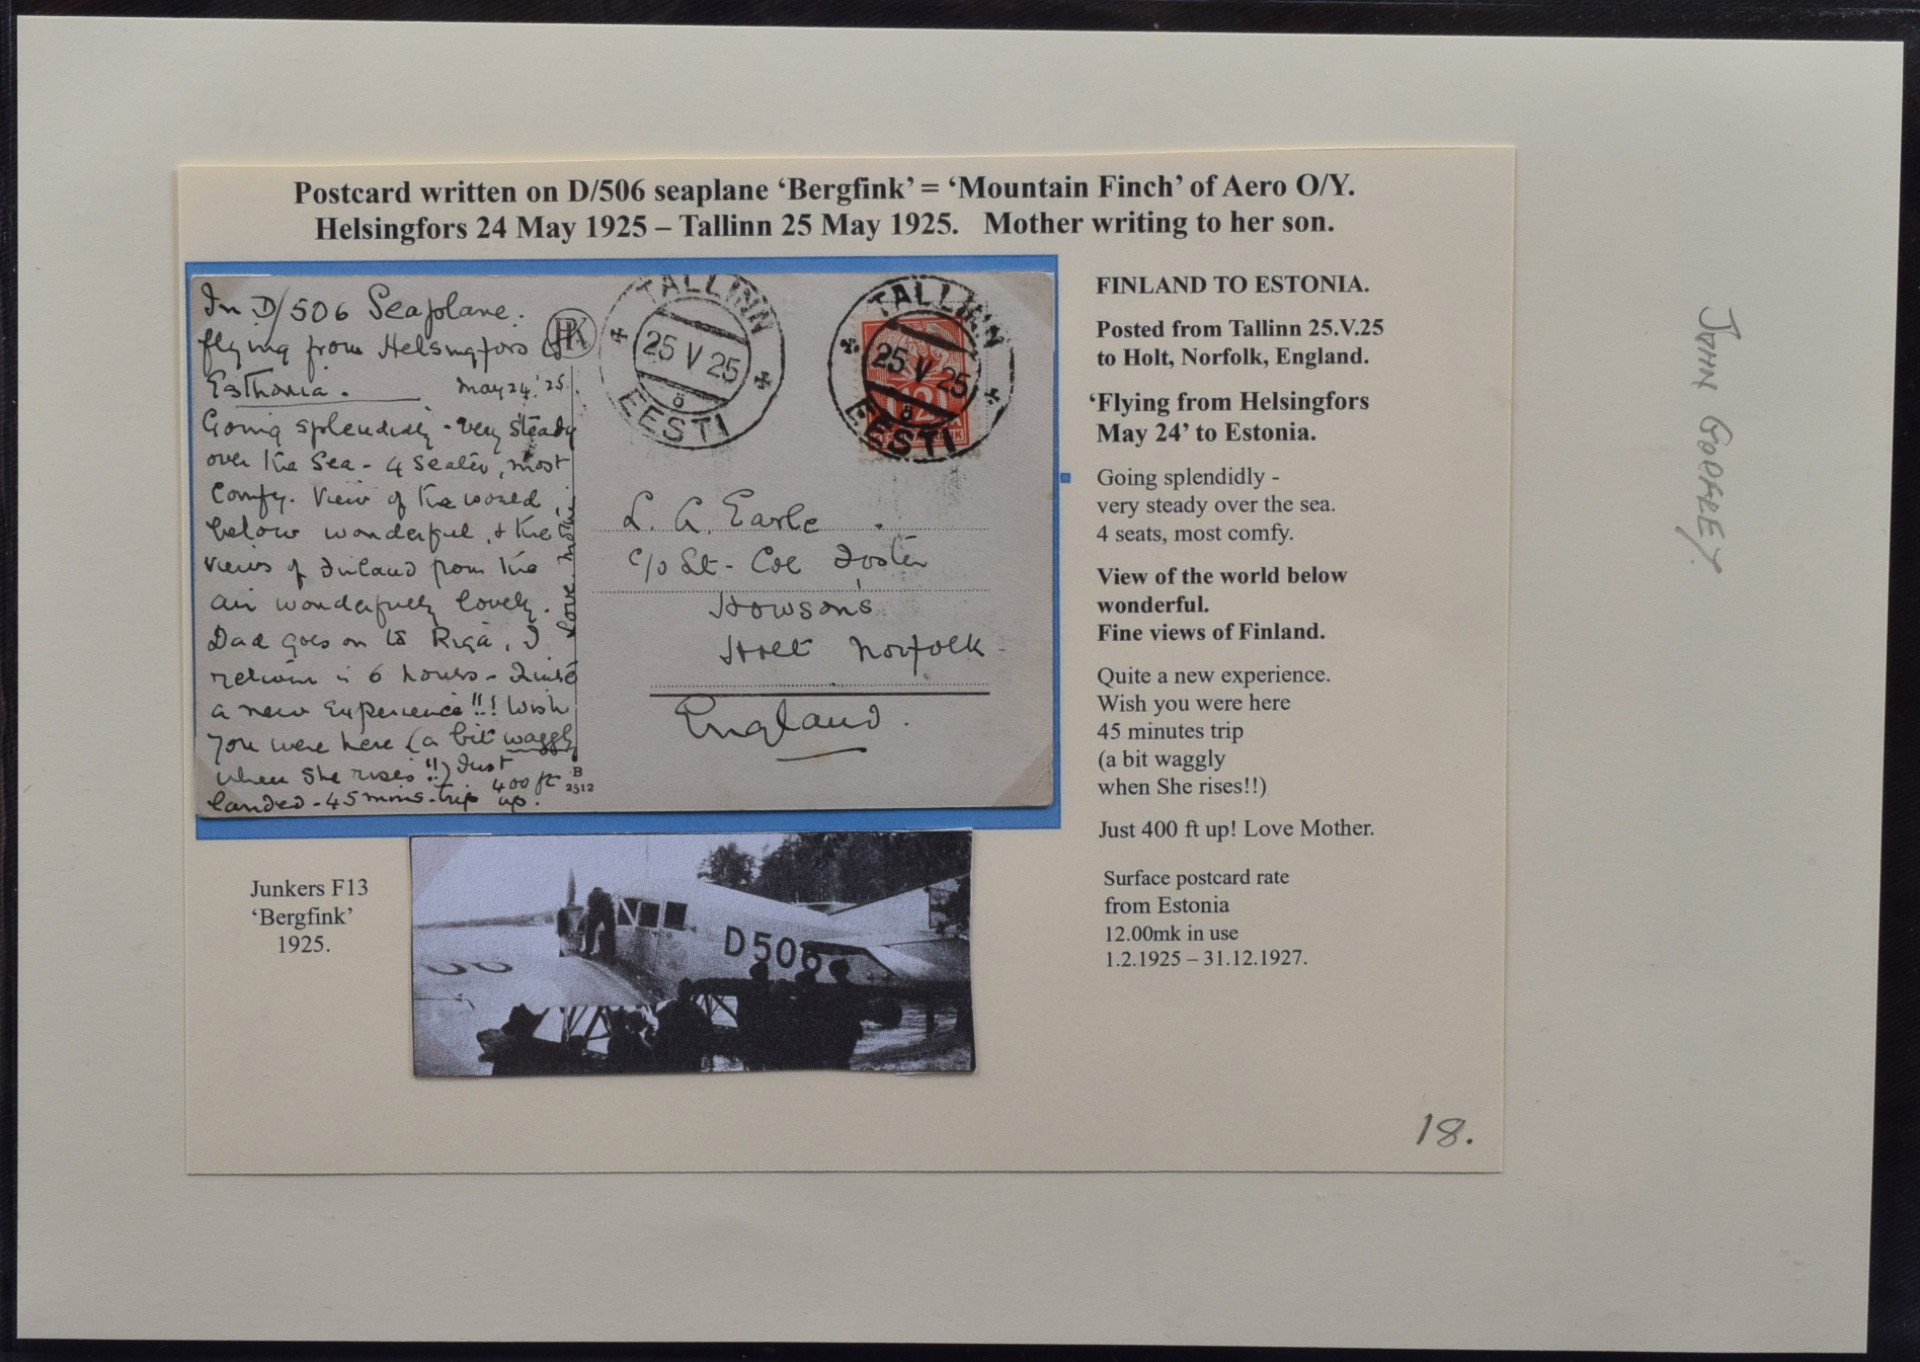 Postcard written on D/506 seaplane ‘Bergfink’ = ‘Mountain Finch’ of Aero O/Y.
Helsingfors 24 May 1925 – Tallinn 25 May 1925. Mother writing to her son.
In D/506 Seaplane.
flying from Helsingfors to
Esthonia. May 24. '25.
Going splendidly - very steady
over the Sea - 4 Seater, most
Comfy. View of the world
below wonderful, & the
views of Finland from the
air wonderfully lovely.
Dad goes on to Riga, I
return in 6 hours - Quite
a new experience!!! Wish
you were here (a bit waggly
when She rises!!) Just
400 ft
landed - 45 mins. trip up.
Love. Mother.
HK
B
2512
TALLINN
25 V 25
ö
EESTI
TALLINN
25 V 25
ö
EESTI
12
L. A. Earle
c/o Lt - Col Foster
Howson's
Holt Norfolk
England.
FINLAND TO ESTONIA.
Posted from Tallinn 25.V.25
to Holt, Norfolk, England.
‘Flying from Helsingfors
May 24’ to Estonia.
Going splendidly -
very steady over the sea.
4 seats, most comfy.
View of the world below
wonderful.
Fine views of Finland.
Quite a new experience.
Wish you were here
45 minutes trip
(a bit waggly
when She rises!!)
Just 400 ft up! Love Mother.
Surface postcard rate
from Estonia
12.00mk in use
1.2.1925 – 31.12.1927.
Junkers F13
‘Bergfink’
1925.
D506
18.
JOHN GODFREY.